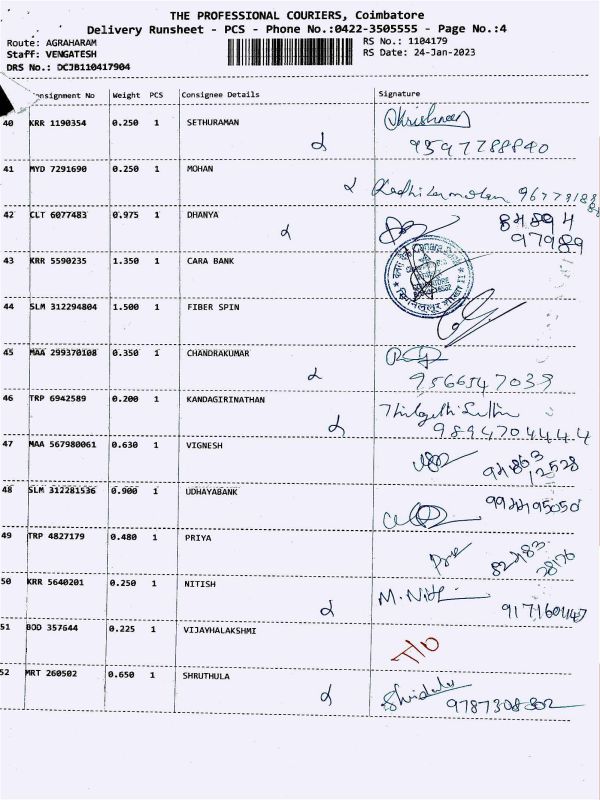 THE PROFESSIONAL COURIERS, Coimbatore
Delivery Runsheet - PCS - Phone No.:0422-3505555 - Page No.:4
Route: AGRAHARAM RS No.: 1104179
Staff: VENGATESH RS Date: 24-Jan-2023
DRS No.: DCJB110417904
Consignment No Weight PCS Consignee Details Signature
40 KRR 1190354 0.250 1 SETHURAMAN
9597788840
41 MYD 7291690 0.250 1 MOHAN
42 CLT 6077483 0.975 1 DHANYA 84894
97989
43 KRR 5590235 1.350 1 CARA BANK
Canara Bank
44 SLM 312294804 1.500 1 FIBER SPIN
45 MAA 299370108 0.350 1 CHANDRAKUMAR
9566547039
46 TRP 6942589 0.200 1 KANDAGIRINATHAN
9894704444
47 MAA 567980061 0.630 1 VIGNESH
12528
48 SLM 312281536 0.900 1 UDHAYABANK
49 TRP 4827179 0.480 1 PRIYA
50 KRR 5640201 0.250 1 NITISH M. Nith
9171601147
51 BOD 357644 0.225 1 VIJAYHALAKSHMI
52 MRT 260502 0.650 1 SHRUTHULA
9787308802